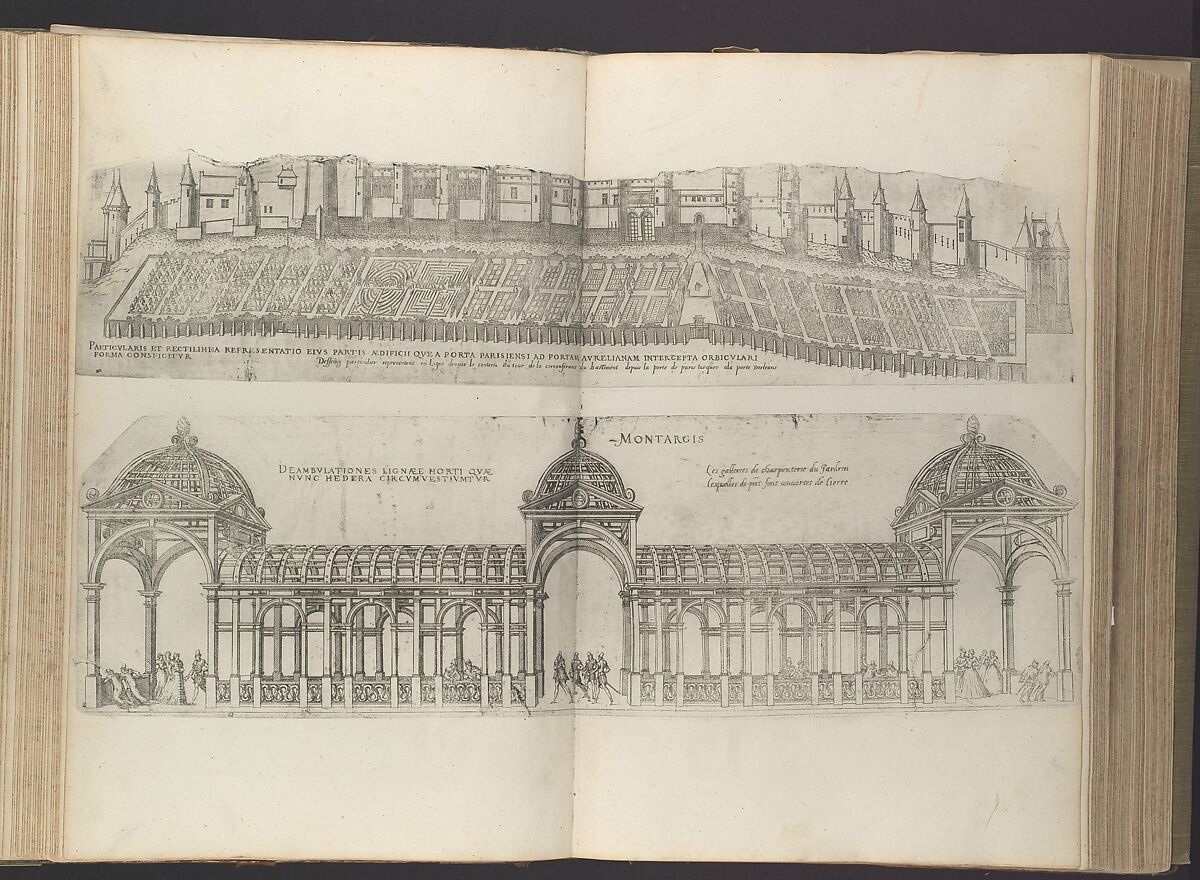 PARTICVLARIS ET RECTILINEA REPRESENTATIO EIVS PARTIS ÆDIFICII QVE A PORTA PARISIENSI AD PORTAM AVRELIANAM INTERCEPTA ORBICVLARI
FORMA CONSPICITVR
Desseing particulier representant en ligne droite le contenu du tour de la circonference du Bastiment depuis la porte de paris iusques a la porte dorleans
MONTARGIS
DEAMBVLATIONES LIGNÆE HORTI QVÆ
NVNC HEDERA CIRCVMVESTIVMTVR
Les galleres de charpenterie du Jardrin
lesquelles de pnt sont couvertes de lierre